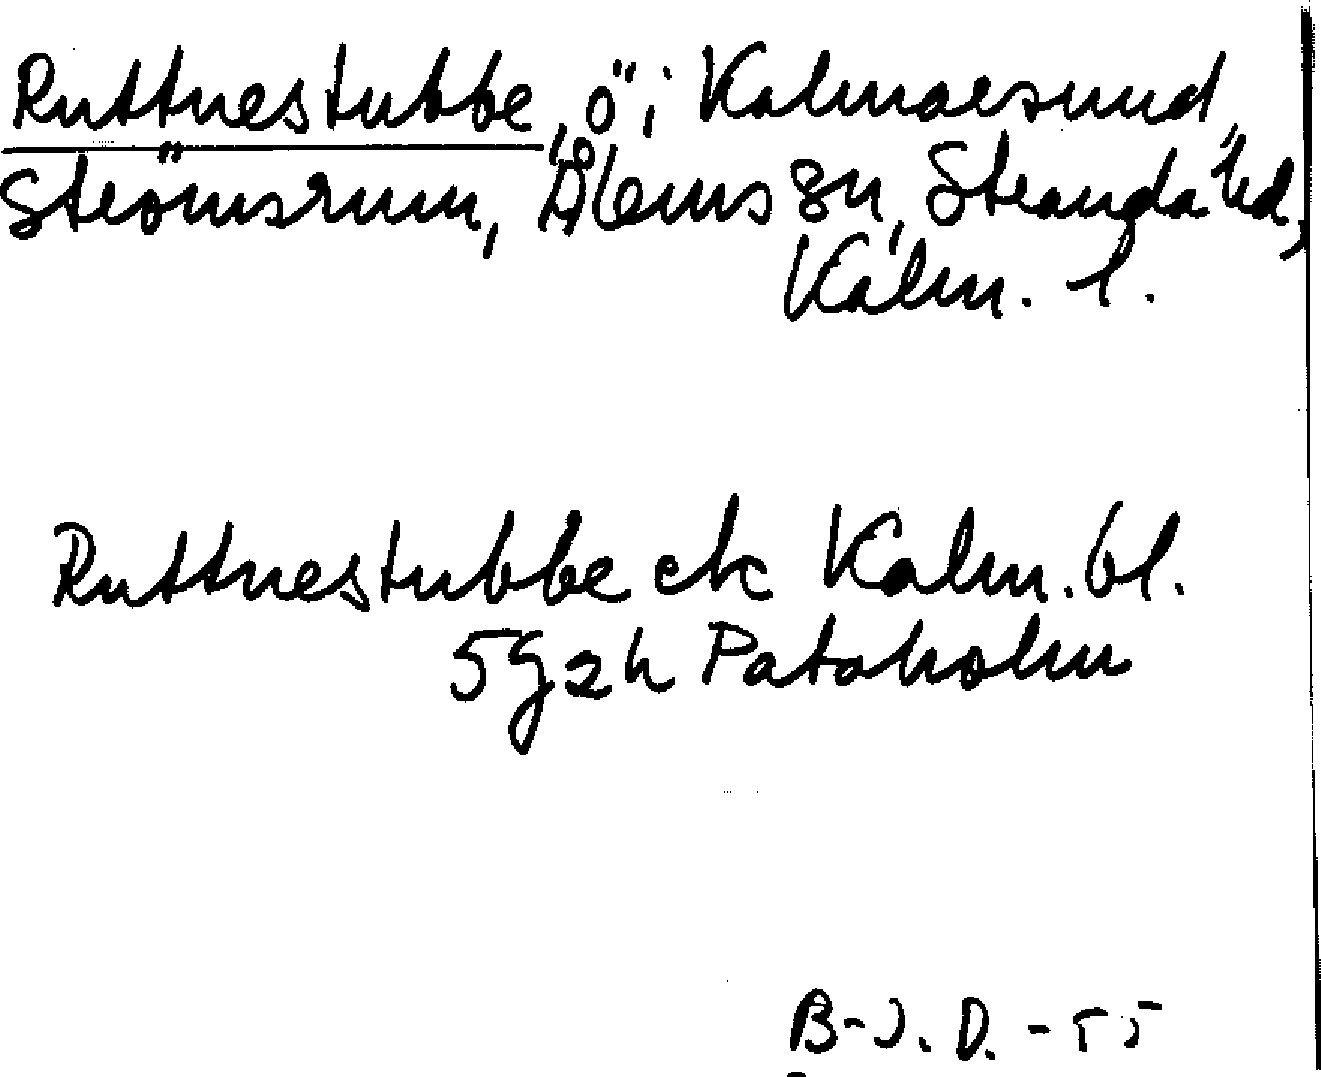 Ruttnestubbe, ö i Kalmarsund,
Strömsrum, Ålems sn, Stranda hd,
Kalm. l.
Ruttnestubbe ek Kalm. bl.
5g2h Pataholm
B-J. D. -55